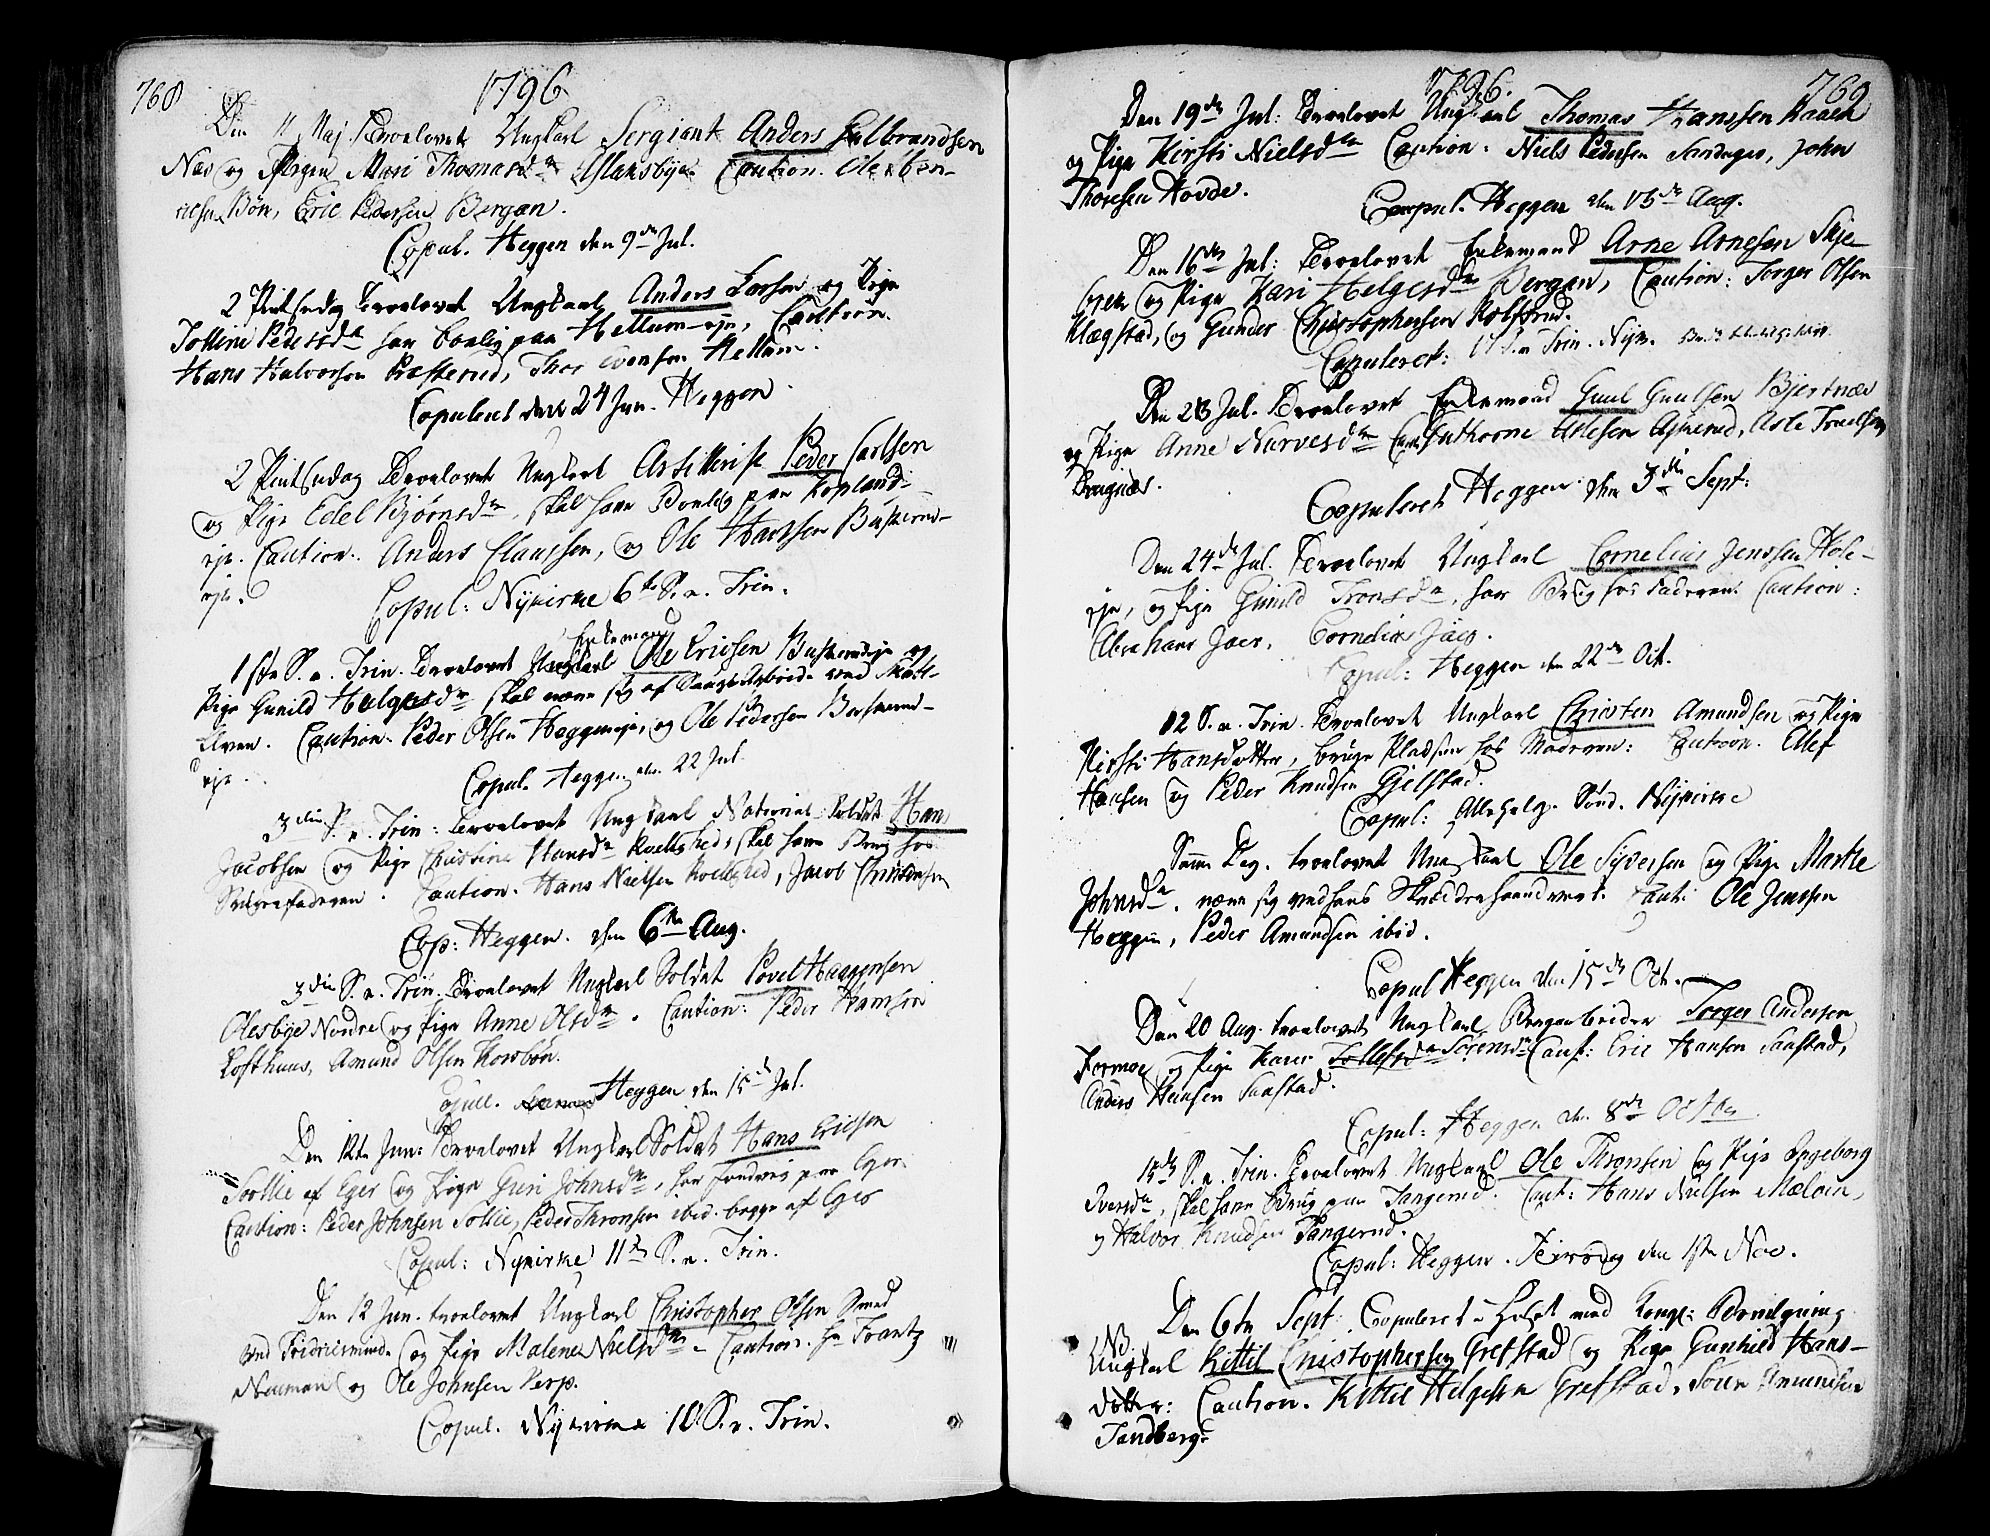 768
1796
Den 11 Maj. Trolovet Ungkarl Sergiant Anders Gulbrandsen
Næs og Pigen Mari Thomasdr Aslaksbye Caution. Ole
Bøn, Eric Pedersen Bergan.
Copul. Heggen den 9de Jul.
2 Pintsedag Trolovet Ungkarl Anders Larsen og Pige
Pedersdr har Bolig paa Hellum-eje, Caution.
Hans Halvorsen Præsterud, Thor Evensen Hellum.
Copuleret den 24 Jun. Heggen
2 Pintsedag Trolovet Ungkarl Artillerist Peder Carlsen
og Pige Edel Bjørnsdr, skal have Bolig paa Kopland-
eje. Caution. Anders Claussen, og Ole Hansen Buskerud-
eje.
Copul: Nykirke 6te S. a. Trin.
Enkemand
1ste S. a. Trin. Trolovet Ungkarl Ole Ericsen Buskerudeje og
Pige Gunild Helgesdr skal nære sig af Saugbrugsarbeide ved
Elven. Caution. Peder Olsen Heggeneje, og Ole Pedersen Buskerud-
eje.
Copul. Heggen den 22 Jul.
3die S. a. Trin: Trolovet Ungkarl National Soldat Hans
Jacobsen og Pige Christine Hansdr skal have Brug hos
Svigerfaderen. Caution. Hans Nielsen, Jacob Christensen
Cop: Heggen. den 6te Aug.
3die S. a. Trin. Trolovet Ungkarl Soldat Povel Haagensen
Olesbye Nordre og Pige Anne Olsdr. Caution: Peder
Lofthuus, Amund Olsen Korsbøn.
Copul. Heggen den 15de Jul.
Den 12te Jun: Trolovet Ungkarl Soldat Hans Ericsen
Sollie af Eger og Pige Guri Johnsdr, har paa Eger
Caution: Peder Johnsen Sollie, Peder Thronsen ibid. begge af Eger
Copul: Nykirke 11te S. a. Trin.
Den 12 Jun. trolovet Ungkarl Christopher Olsen Smed
ved Fridricsminde og Pige Malene Nielsdr. Caution. Hr Frantz
Neuman og Ole Johnsen Verp.
Copul. Nykirke 10 S. a. Trin.
1796.
769
Den 19de Jul: Trolovet Ungkarl Thomas Hanssen Kaaen
og Pige Kirsti Nielsdr Caution: Niels Pedersen, John
Thoresen Hovde.
Copul. Heggen den 15de Aug.
Den 16de Jul: Trolovet Enkemand Arne Arnesen Skje-
og Pige Kari Helgesdr Bergan, Caution: Torger Olsen
Klægstad, og Gunder Christophersen Kolsrud.
Copuleret: S. a. Trin. Nyk.
Den 23 Jul. Trolovet Enkemand Guul Guulsen Bjertnæs
og Pige Anne Narvesdr Askerud, Asle Truelsen
Copuleret Heggen den 3die Sept:
Den 24de Jul. Trolovet Ungkarl Cornelius Jenssen Hole-
eje, og Pige Gunild Tronsdr, har Brug hos Faderen. Caution:
Abraham Joer, Cornelius Joer.
Copul: Heggen den 22de Oct.
12 S. a. Trin. Trolovet Ungkarl Christen Amundsen og Pige
Kirsti Hansdatter, bruge Pladsen hos Moderen: Caution. Ellef
Hansen og Peder Knudsen Gjelstad.
Copul: Allehelg. Sønd. Nykirke
Samme Dag. trolovet Ungkarl Ole Syversen og Pige Marthe
Johnsdr. nære sig ved hans Skrædderhaandverk. Caut: Ole Jenssen
Heggen, Peder Amundsen ibid.
Copul Heggen den 15de Oct.
Den 20 Aug. trolovet Ungkarl Bergarbeider Torger Andersen
Formoe og Pige Karen Sørensdr Caut: Eric Hansen Saastad,
Anders Hansen Saastad.
Copul: Heggen den 8de October
15de S. a. Trin. Trolovet Ungkarl Ole Thronsen og Pige Ingeborg
Iversdr, skal have Brug paa Tangerud. Caut: Hans Nielsen Mæleen,
og Halvor Knudsen Tangerud.
Copul: Heggen. Tirsdag den 1ste Nov.
Den 6te Sept: Copuleret i Huset med Kongl: Bevilgning
NB.
Ungkarl Kittil Christophersen Grefstad og Pige Gunhild Hans-
datter: Caution. Kittil Helgesen Grefstad, Søren Amundsen
Sandberg.